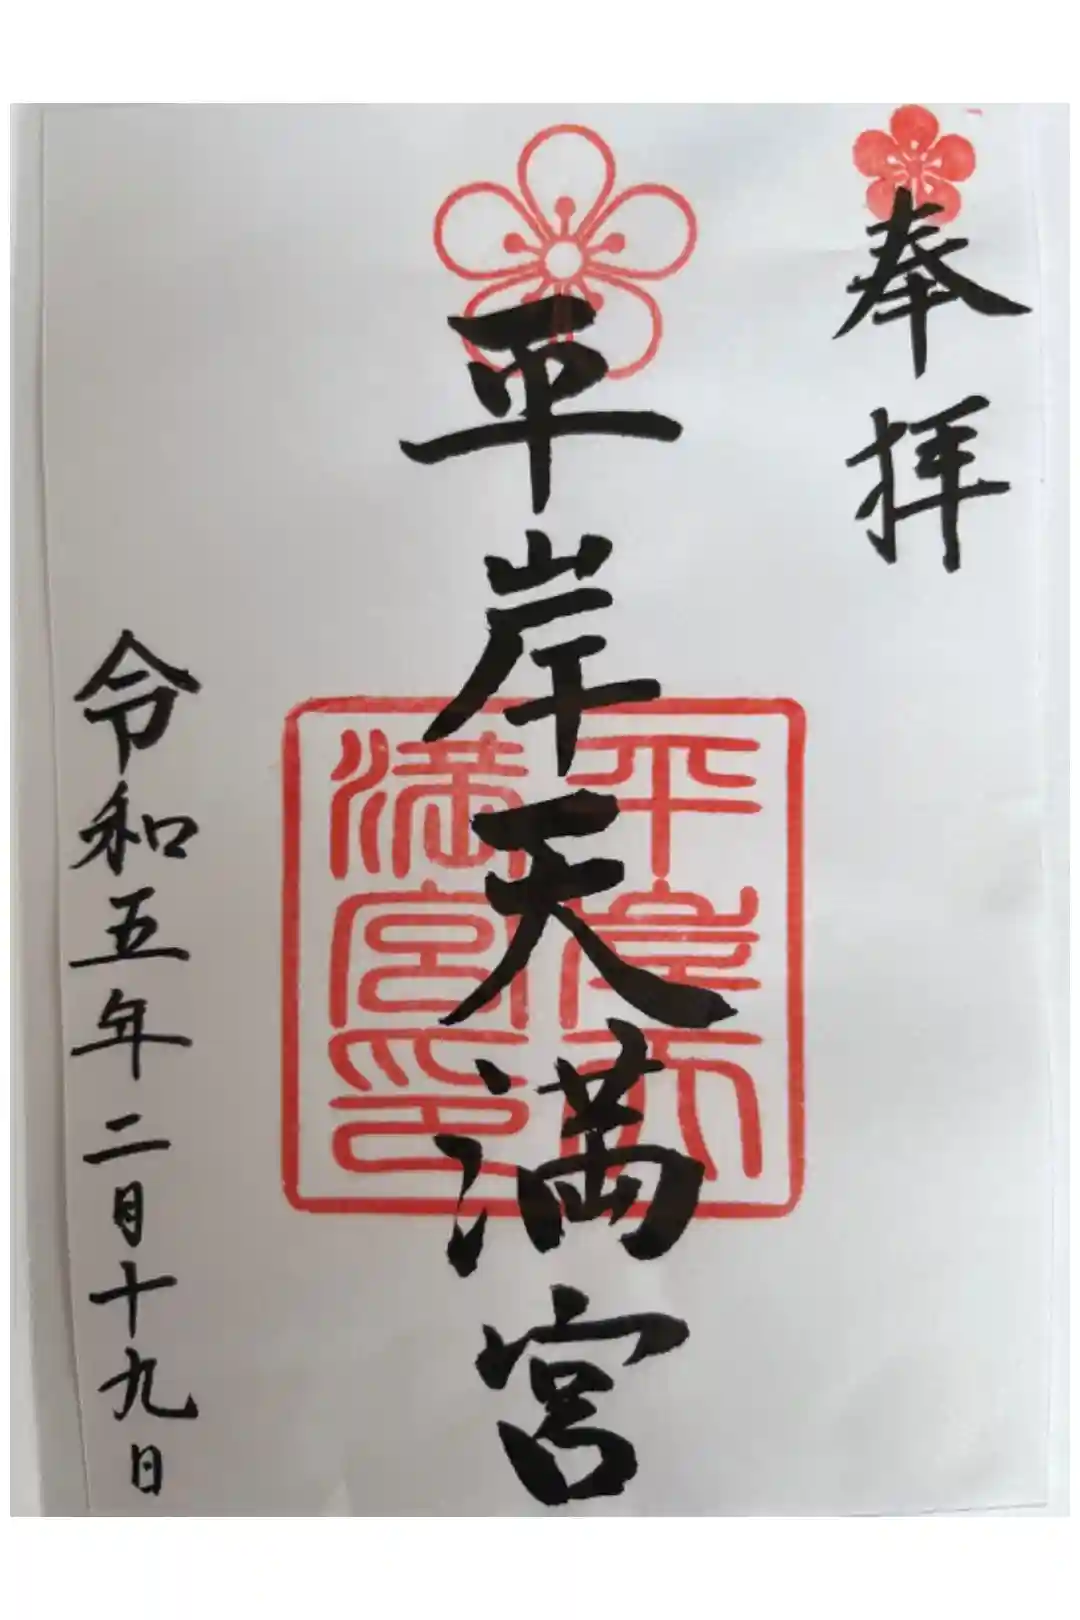 奉拝
平岸天満宮
平岸天
満宮印
令和五年二月十九日